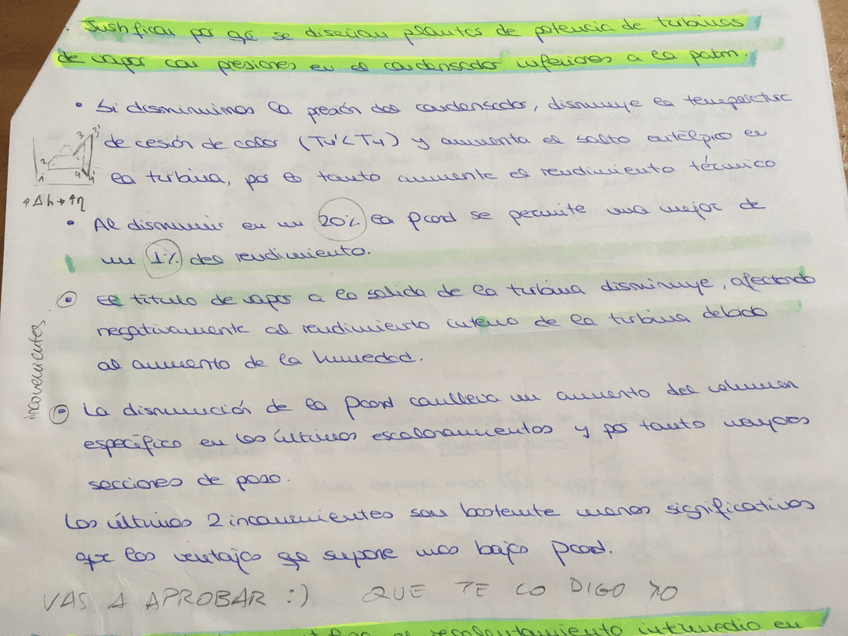 . Justificar por qé se diseñan plantas de potencia de turbinas
de vapor con presiones en el condensador inferiores a la patm.
• Si disminuimos la presión del condensador, disminuye la temperatura
de cesión de calor (T4'<T4) y aumenta el salto entálpico en
la turbina, por lo tanto aumenta el rendimiento térmico
↑Δh→↑η
• Al disminuir en un 20% la pcond se permite una mejor de
un 1% del rendimiento.
• El título de vapor a la salida de la turbina disminuye, afectando
negativamente al rendimiento interno de la turbina debido
al aumento de la humedad.
inconvenientes
• La disminución de la pcond conlleva un aumento del volumen
específico en los últimos escalonamientos y por tanto mayores
secciones de paso.
Los últimos 2 inconvenientes son bastante menos significativos
que las ventajas qe supone mas bajo pcond.
VAS A APROBAR :) QUE TE LO DIGO YO
el recalentamiento intermedio en